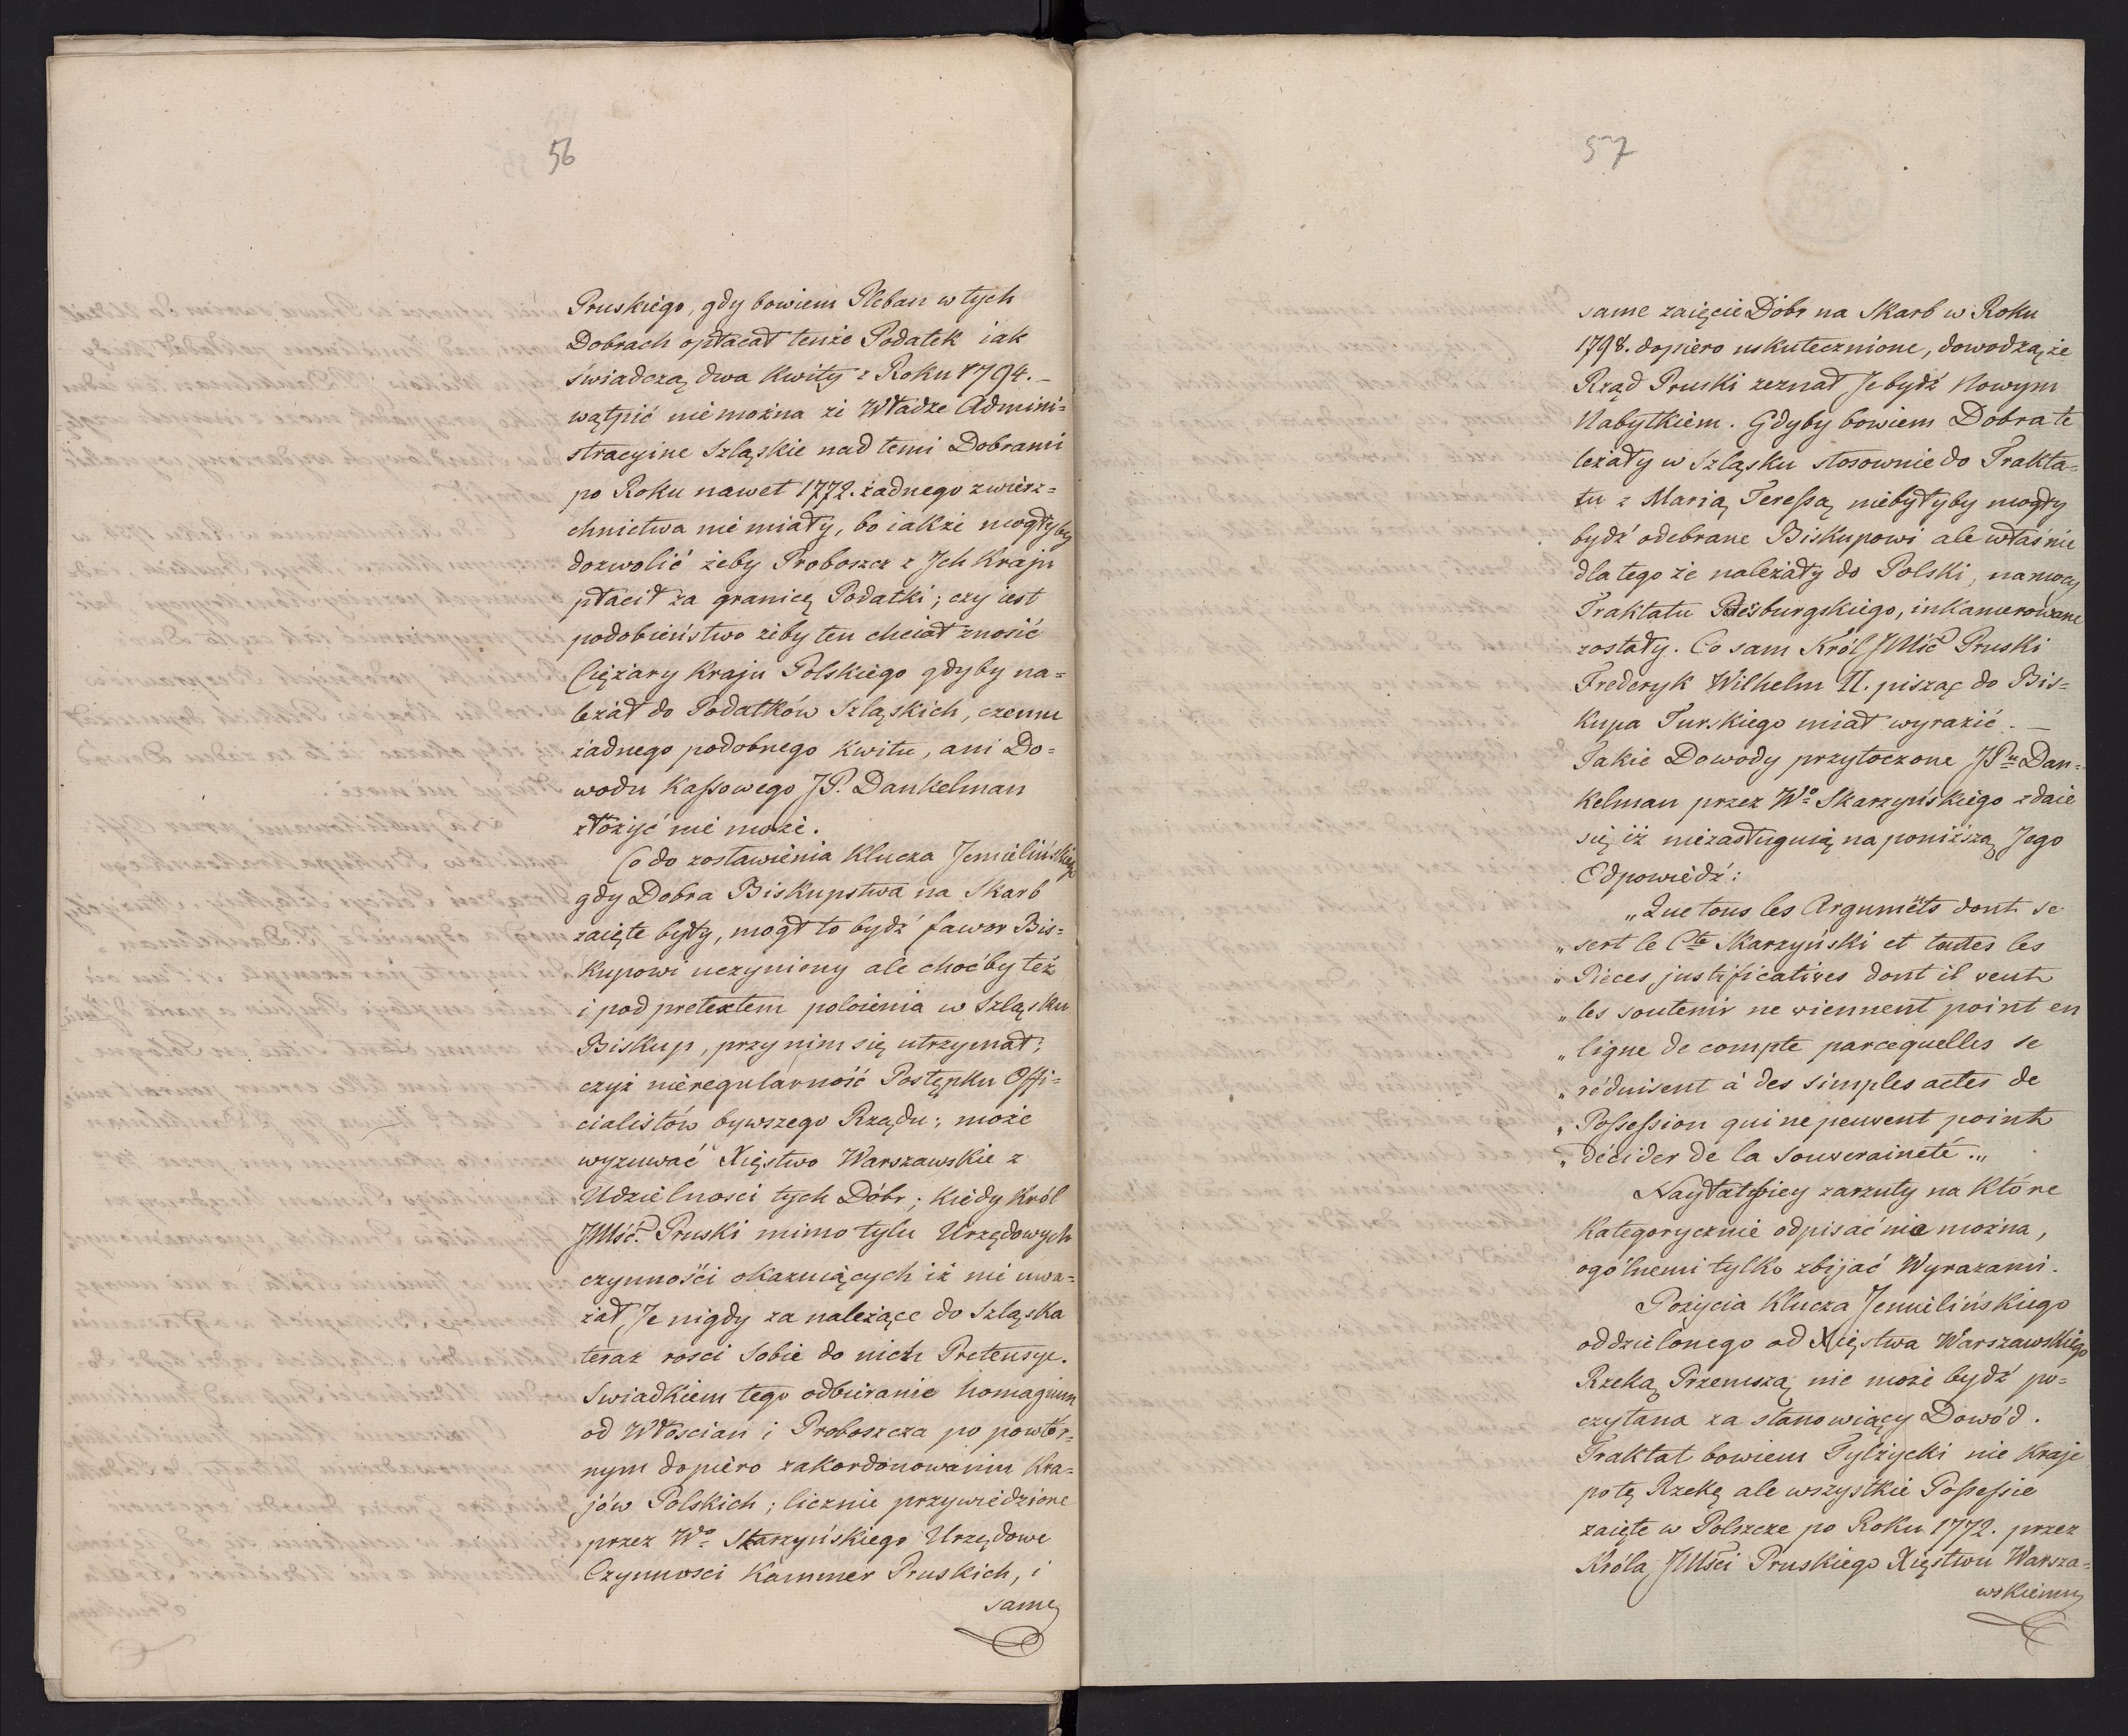 56
Pruskiego, gdy bowiem Pleban w tych
Dobrach opłacał tenże Podatek iak
świadczą dwa Kwity z Roku 1794. _
wątpić nie można że Władze Admini=
stracyine Szląskie nad temi Dobrami
po Roku nawet 1772. żadnego zwierz=
chnictwa nie miały, bo iakże mogłyby
dozwolić żeby Proboszcz z Jch Kraju
płacił za granicę Podatki; czy iest
podobieństwo żeby ten chciał znosić
Ciężary Kraju Polskiego gdyby na=
leżał do Podatków Szląskich, czemu
żadnego podobnego Kwitu, ani Do=
wodu Kassowego JP. Dankelman
złożyć nie może.
Co do zostawienia Klucza Jemielińskiego
gdy Dobra Biskupstwa na Skarb
zaięte były, mógł to bydź fawor Bis=
kupowi uczyniony ale choćby też
i pod pretextem położenia w Szląsku
Biskup, przy nim się utrzymał;
czyż nieregularność Postępku Offi=
cialistów bywszego Rządu; może
wyzuwać Xięstwo Warszawskie z
Udzielnosci tych Dóbr; Kiedy Król
JMść. Pruski mimo tylu Urzędowych
czynności okazuiących iż nie uwa=
żał Je nigdy za należące do Szląska
teraz rosci sobie do nich Pretensye.
Swiadkiem tego odbieranie homagium
od Włoscian i Proboszcza po powtór=
nym dopiero zakordonowaniu Kra=
jów Polskich; licznie przywiedzione
przez Wo. Skarzyńskiego Urzędowe
Czynnosci Kammer Pruskich, i
same
57
same zaięcie Dóbr na Skarb w Roku
1798. dopiero uskutecznione, dowodzą że
Rząd Pruski zeznał Je bydź Nowym
Nabytkiem. Gdyby bowiem Dobra te
leżały w Szląsku stosownie do Trakta=
tu z Marią Teressą niebyłyby mogły
bydź odebrane Biskupowi ale właśnie
dla tego że należały do Polski, na mocy
Traktatu Petesburgskiego, inkamerowane
zostały. Co sam Król JMść Pruski
Frederyk Wilhelm II. pisząc do Bis=
kupa Turskiego miał wyrazić. _
Takie Dowody przytoczone JPu Dan=
kelman przez Wo. Skarzyńskiego zdaie
się iż niezasługuią na poniższą Jego
Odpowiedź:
„Que tous les Arguments dont se
„sert le Cte Skarzyński et toutes les
„Pièces justificatives dont il veut
„les soutenir ne viennent point en
„ligne de compte parcequelles se
„réduisent à des simples actes de
„Possession qui ne peuvent point
„décider de la souveraineté.„
Nayłatwiey zarzuty na Które
Kategorycznie odpisać nie można,
ogólnemi tylko zbijać Wyrazami.
Pozycia Klucza Jemielińskiego
oddzielonego od Xięstwa Warszawskiego
Rzeką Przemszą nie może bydź po=
czytana za stanowiący Dowód.
Traktat bowiem Tylżycki nie Kraje
po tę Rzekę ale wszystkie Possessie
zaięte w Polszcze po Roku 1772. przez
Króla JMści Pruskiego Xięstwu Warsza=
wskiemu